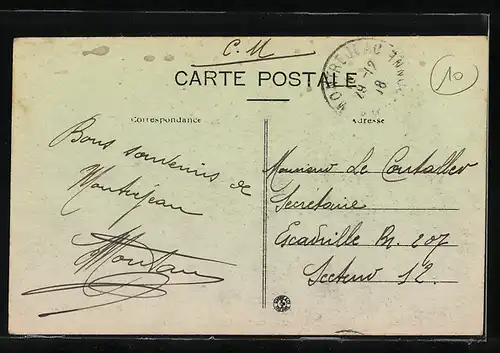 C. M
CARTE POSTALE
MONTREJEAU
19-12
18
10
Correspondance
Adresse
Bons souvenirs de
Montrejeau
Monsieur Le Coutaller
Secrétaire
Escadrille Br. 207
Secteur 12.